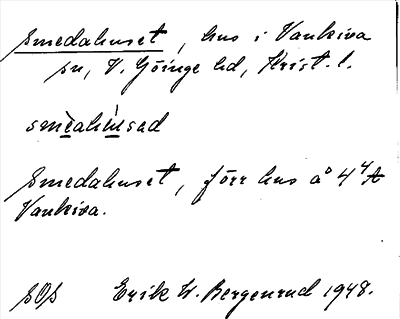 Smedahuset, hus i Vankiva
sn, V. Göinge hd, Krist. l.
smèahùsad
Smedahuset, förr hus å 4
Vankiva.
SOS Erik W. Bergenrud 1948.